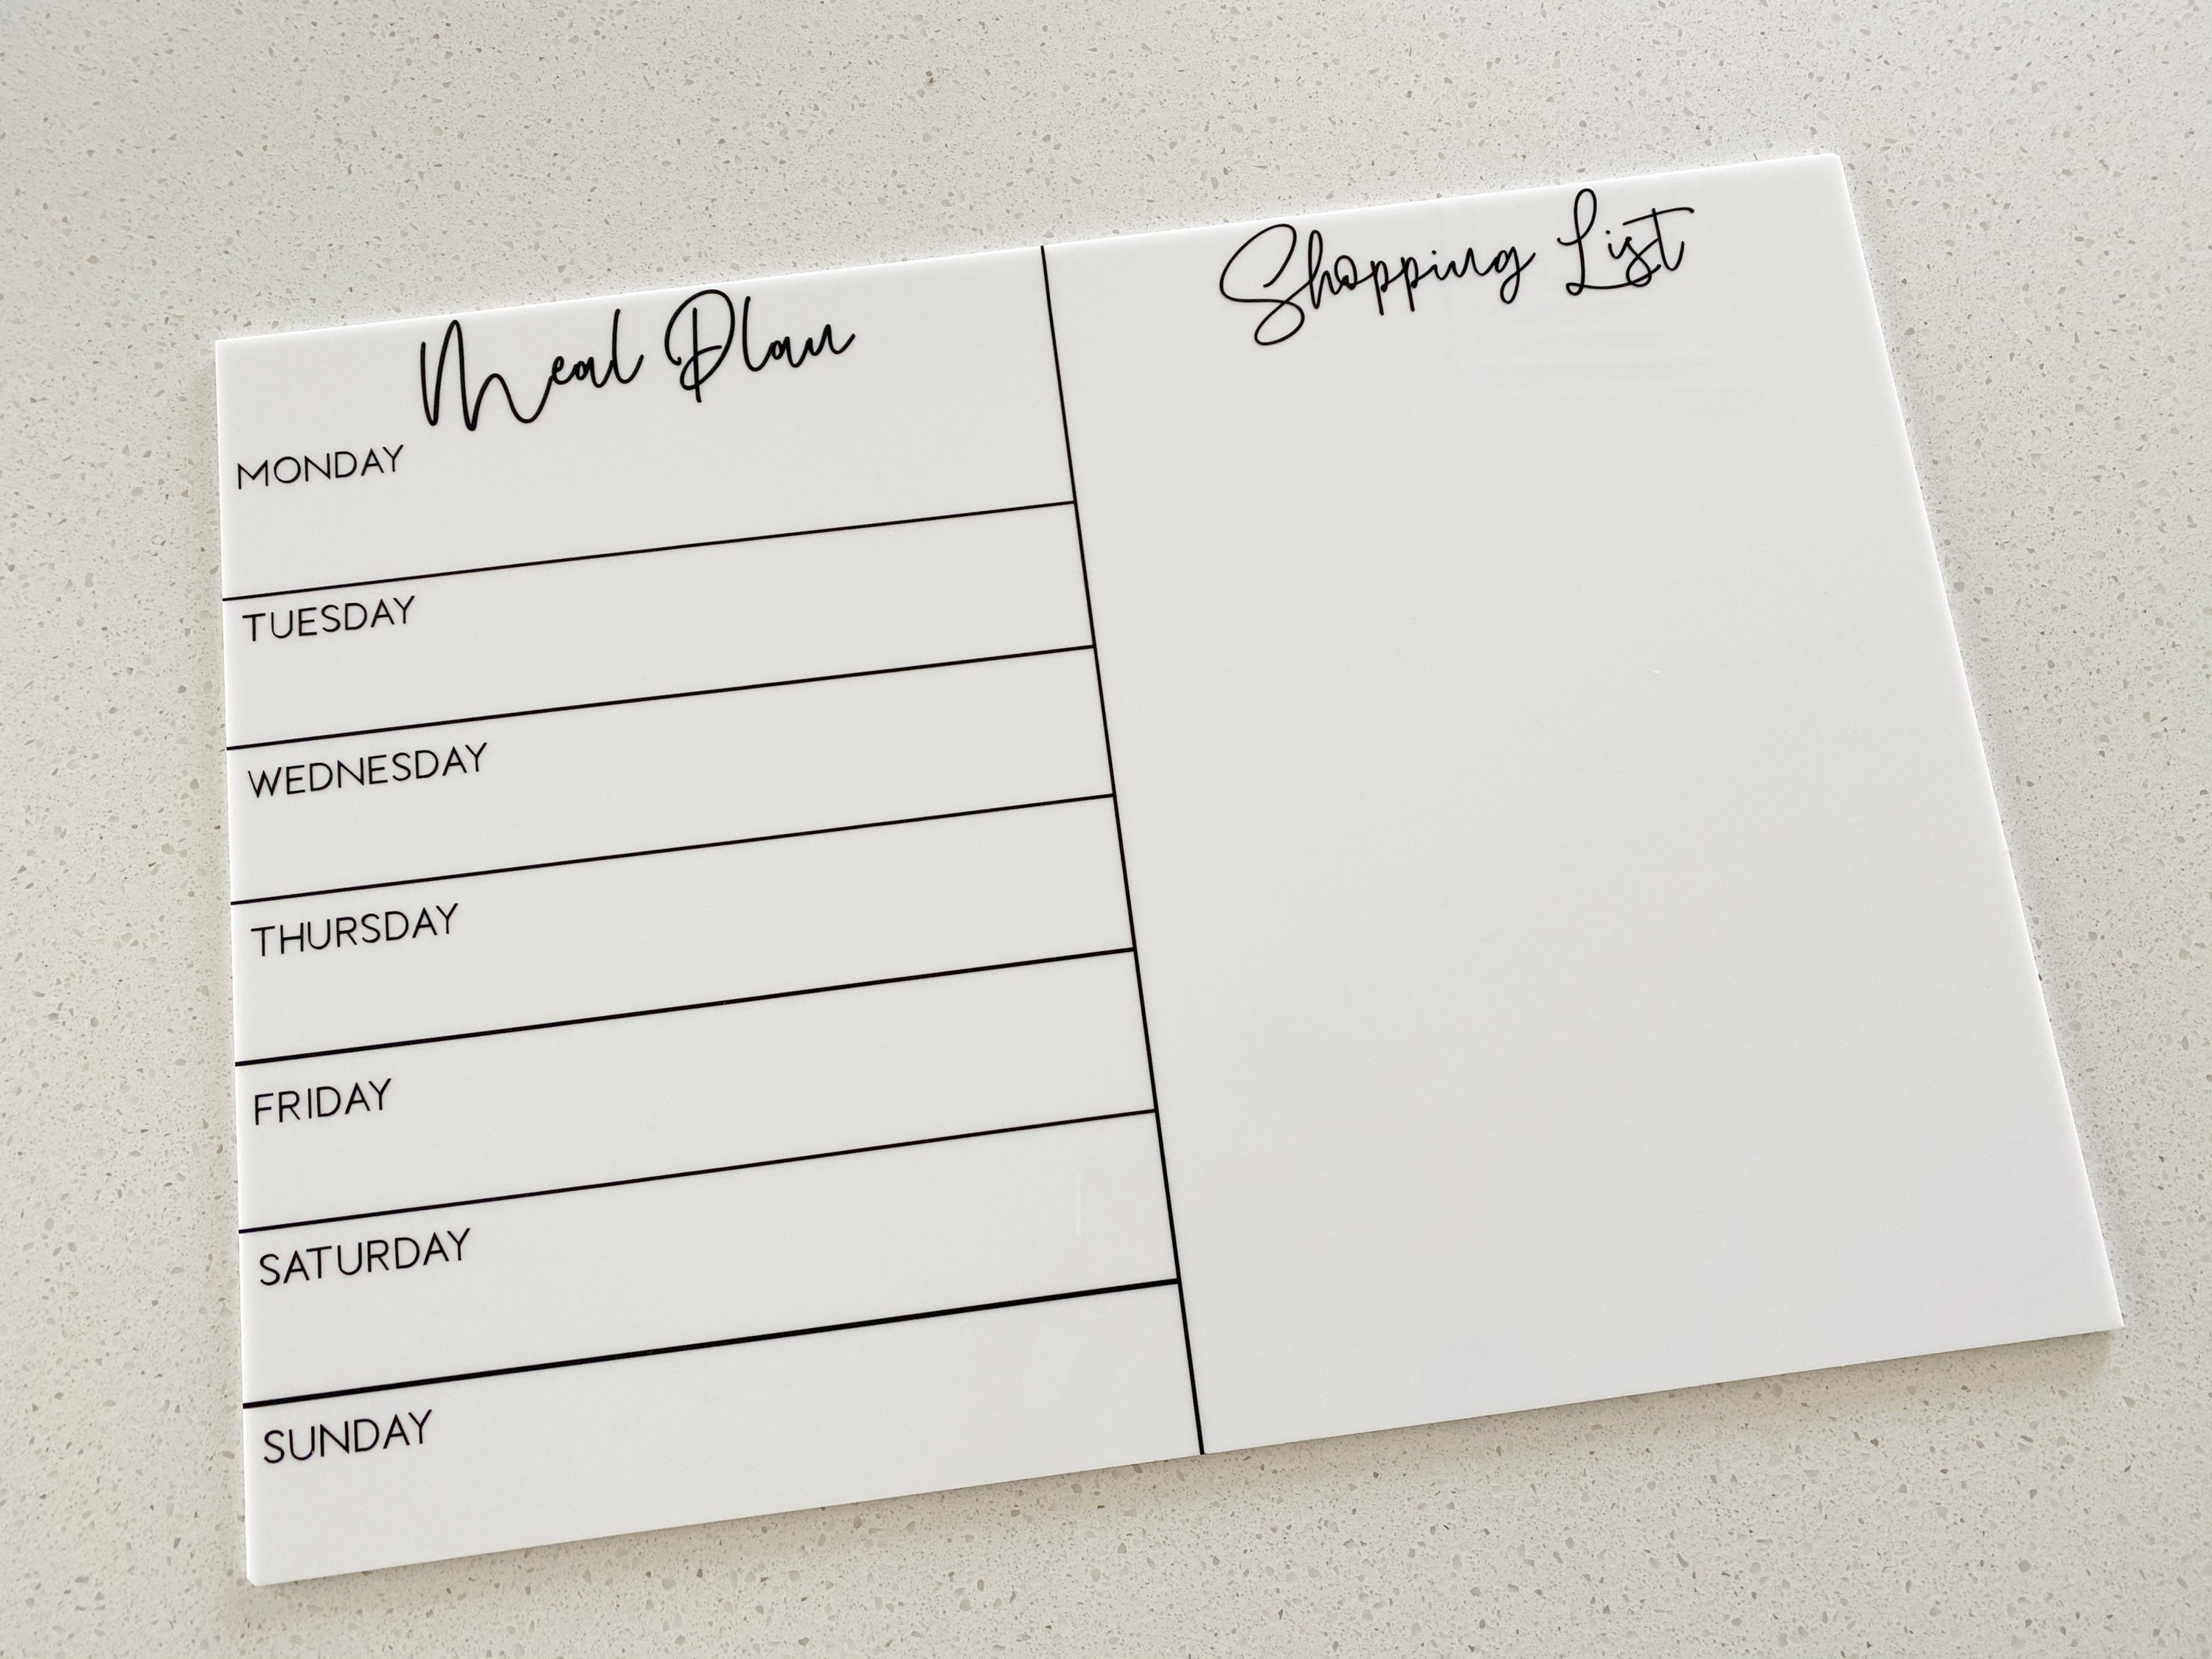 Meal Plan
MONDAY
TUESDAY
WEDNESDAY
THURSDAY
FRIDAY
SATURDAY
SUNDAY
Shopping List